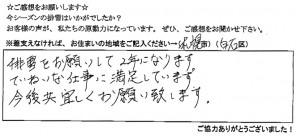 ☆ご感想をお願いします☆
今シーズンの排雪はいかがでしたか？
お客様の声が、私たちの原動力になっています。ぜひ、ご感想をお聞かせ下さい。
※差支えなければ、お住まいの地域をご記入ください→（札幌市）（白石区）
排雪をお願いして2年になります
ていねいな仕事に満足しています
今後共宜しくお願い致します。
ご協力ありがとうございました！